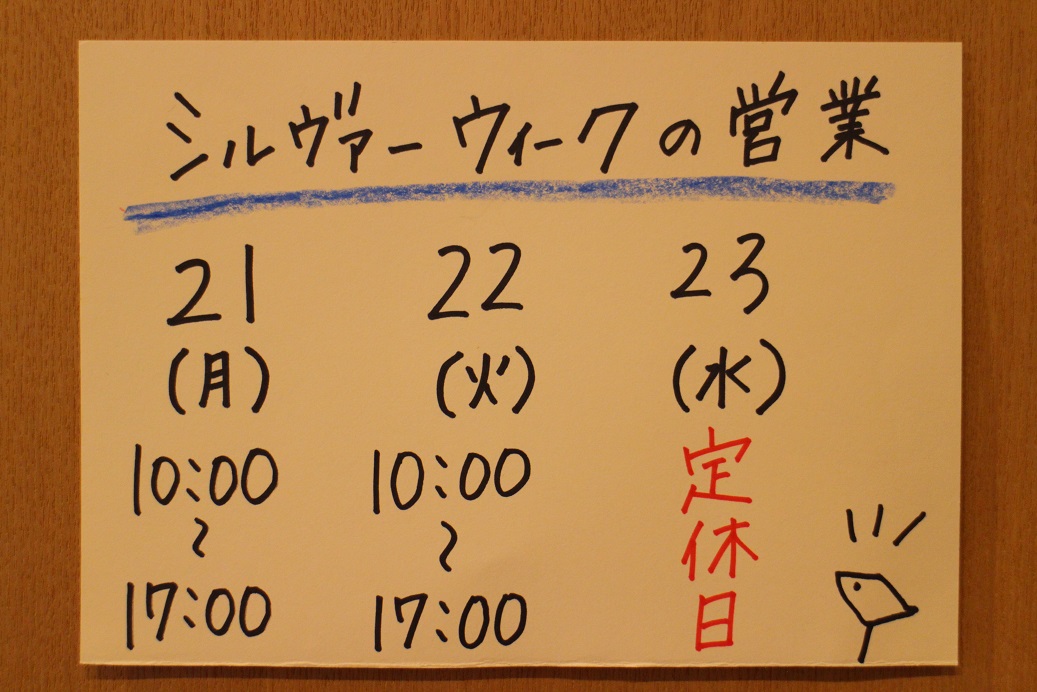 シルヴァーウィークの営業
21 22 23
(月) (火) (水)
10:00 10:00 定休日
~ ~
17:00 17:00